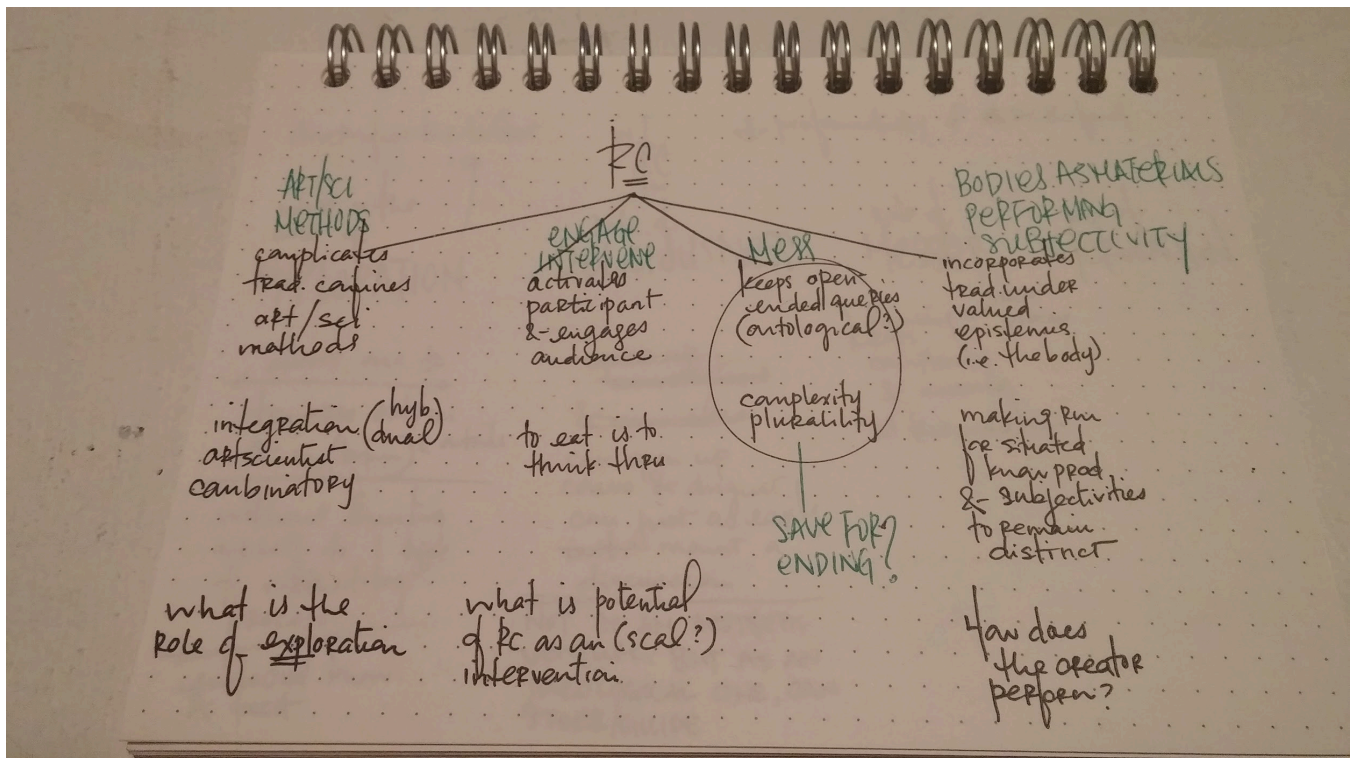 RC
ART/SCI
METHODS
complicates
trad. confines
art/sci
methods
integration (hyb.
dual)
artscientist
combinatory
what is the
role of exploration
ENGAGE
INTERVENE
activates
participant
&- engages
audience
to eat is to
think thru
what is potential
of RC as an (scal?)
intervention
MESS
keeps open
ended queries
(ontological?)
complexity
plurality
SAVE FOR?
ENDING?
BODIES AS MATERIALS
PERFORMING
SUBJECTIVITY
incorporates
trad. under
valued
epistemes
(i.e. the body)
making
for situated
know prod
&- subjectivities
to remain
distinct
How does
the creator
perform?